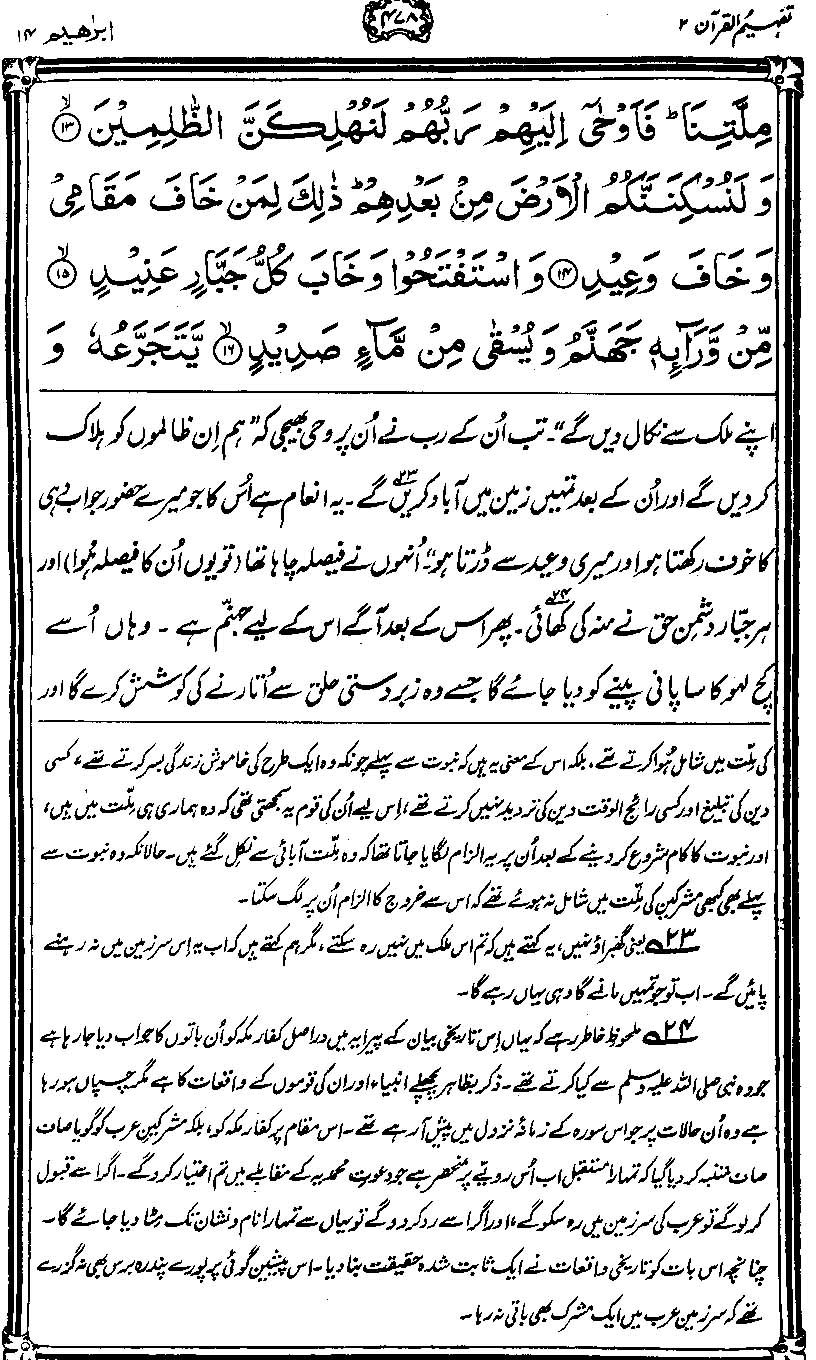 تفہیم القرآن ۲
۴۷۸
ابراھیم ۱۴
مِلَّتِنَا ؕ فَاَوْحٰۤی اِلَیْهِمْ رَبُّهُمْ لَنُهْلِكَنَّ الظّٰلِمِیْنَ ۙ﴿۱۳﴾
وَ لَنُسْكِنَنَّكُمُ الْاَرْضَ مِنْۢ بَعْدِهِمْ ؕ ذٰلِكَ لِمَنْ خَافَ مَقَامِیْ
وَ خَافَ وَعِیْدِ ﴿۱۴﴾ وَ اسْتَفْتَحُوْا وَ خَابَ كُلُّ جَبَّارٍ عَنِیْدٍ ۙ﴿۱۵﴾
مِّنْ وَّرَآئِهٖ جَهَنَّمُ وَ یُسْقٰی مِنْ مَّآءٍ صَدِیْدٍ ۙ﴿۱۶﴾ یَّتَجَرَّعُهٗ وَ
اپنے ملک سے نکال دیں گے“۔ تب اُن کے رب نے اُن پر وحی بھیجی کہ ”ہم اِن ظالموں کو ہلاک
کر دیں گے اور اُن کے بعد تمہیں زمین میں آباد کریں۲۳ گے۔ یہ انعام ہے اُس کا جو میرے حضور جواب دہی
کا خوف رکھتا ہو اور میری وعید سے ڈرتا ہو“۔ اُنہوں نے فیصلہ چاہا تھا (تو یوں اُن کا فیصلہ ہُوا) اور
ہر جبّار دشمنِ حق نے منہ کی کھائی۲۴۔ پھر اس کے بعد آگے اس کے لیے جہنّم ہے۔ وہاں اُسے
کچ لہو کا سا پانی پینے کو دیا جائے گا جسے وہ زبردستی حلق سے اُتارنے کی کوشش کرے گا اور
کی مِلّت میں شامل ہُوا کرتے تھے، بلکہ اس کے معنی یہ ہیں کہ نبوت سے پہلے چونکہ وہ ایک طرح کی خاموش زندگی بسر کرتے تھے، کسی
دین کی تبلیغ اور کسی رائج الوقت دین کی تردید نہیں کرتے تھے، اِس لیے اُن کی قوم یہ سمجھتی تھی کہ وہ ہماری ہی مِلّت میں ہیں،
اور نبوت کا کام شروع کر دینے کے بعد اُن پر یہ الزام لگایا جاتا تھا کہ وہ مِلّت آبائی سے نکل گئے ہیں۔ حالانکہ وہ نبوت سے
پہلے بھی کبھی مشرکین کی مِلّت میں شامل نہ ہوئے تھے کہ اس سے خروج کا الزام اُن پر لگ سکتا۔
۲۳ یعنی گھبراؤ نہیں، یہ کہتے ہیں کہ تم اس ملک میں نہیں رہ سکتے، مگر ہم کہتے ہیں کہ اب یہ اِس سرزمین میں نہ رہنے
پائیں گے۔ اب تو جو تمہیں مانے گا وہی یہاں رہے گا۔
۲۴ ملحوظِ خاطر رہے کہ یہاں اِس تاریخی بیان کے پیرایہ میں دراصل کفارِ مکہ کو اُن باتوں کا جواب دیا جا رہا ہے
جو وہ نبی صلی اللہ علیہ وسلم سے کیا کرتے تھے۔ ذکر بظاہر پچھلے انبیاء اور ان کی قوموں کے واقعات کا ہے مگر چسپاں ہو رہا
ہے وہ اُن حالات پر جو اس سورہ کے زمانۂ نزول میں پیش آ رہے تھے۔ اس مقام پر کفارِ مکہ کو، بلکہ مشرکینِ عرب کو گویا صاف
صاف متنبہ کر دیا گیا کہ تمہارا مستقبل اب اُس رویّے پر منحصر ہے جو دعوتِ محمدیہ کے مقابلے میں تم اختیار کرو گے۔ اگر اسے قبول
کر لو گے تو عرب کی سرزمین میں رہ سکو گے، اور اگر اسے رد کر دو گے تو یہاں سے تمہارا نام و نشان تک مِٹا دیا جائے گا۔
چنانچہ اس بات کو تاریخی واقعات نے ایک ثابت شدہ حقیقت بنا دیا۔ اس پیشین گوئی پر پورے پندرہ برس بھی نہ گزرے
تھے کہ سرزمینِ عرب میں ایک مشرک بھی باقی نہ رہا۔